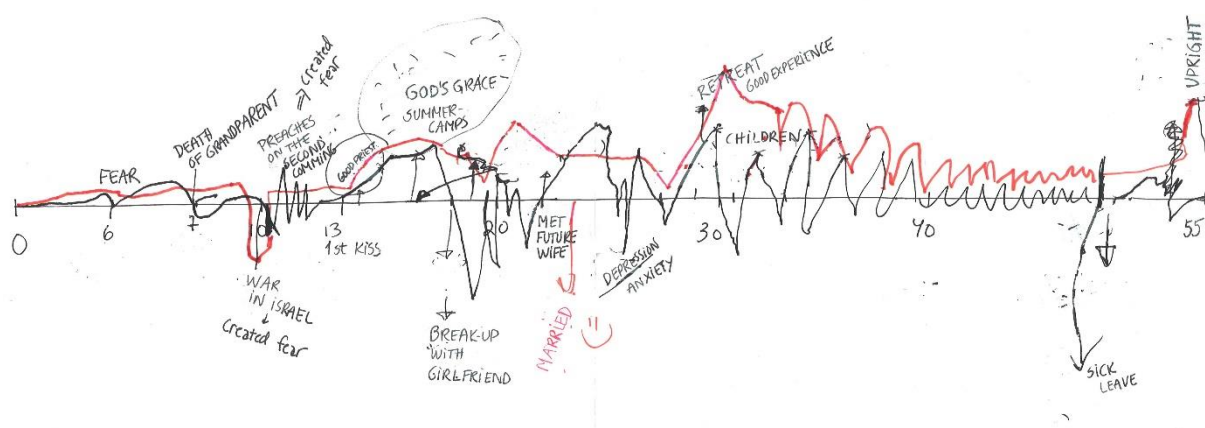 FEAR
DEATH
OF GRANDPARENT
PREACHES
ON THE
SECOND
COMMING
Created
fear
GOOD PRIEST
GOD'S GRACE
SUMMER-
CAMPS
RETREAT
GOOD EXPERIENCE
CHILDREN
UPRIGHT
0
6
7
10
13
20
30
40
55
1st KISS
WAR
IN ISRAEL
Created fear
BREAK-UP
WITH
GIRLFRIEND
MET
FUTURE
WIFE
MARRIED
DEPRESSION
ANXIETY
SICK
LEAVE